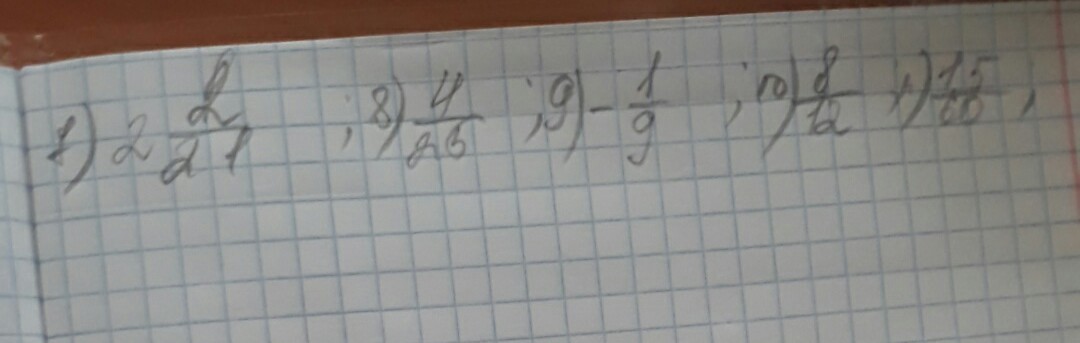 7) 2 2/21 ; 8) 4/25 ; 9) - 1/9 ; 10) 8/12 11) 15/60 ,